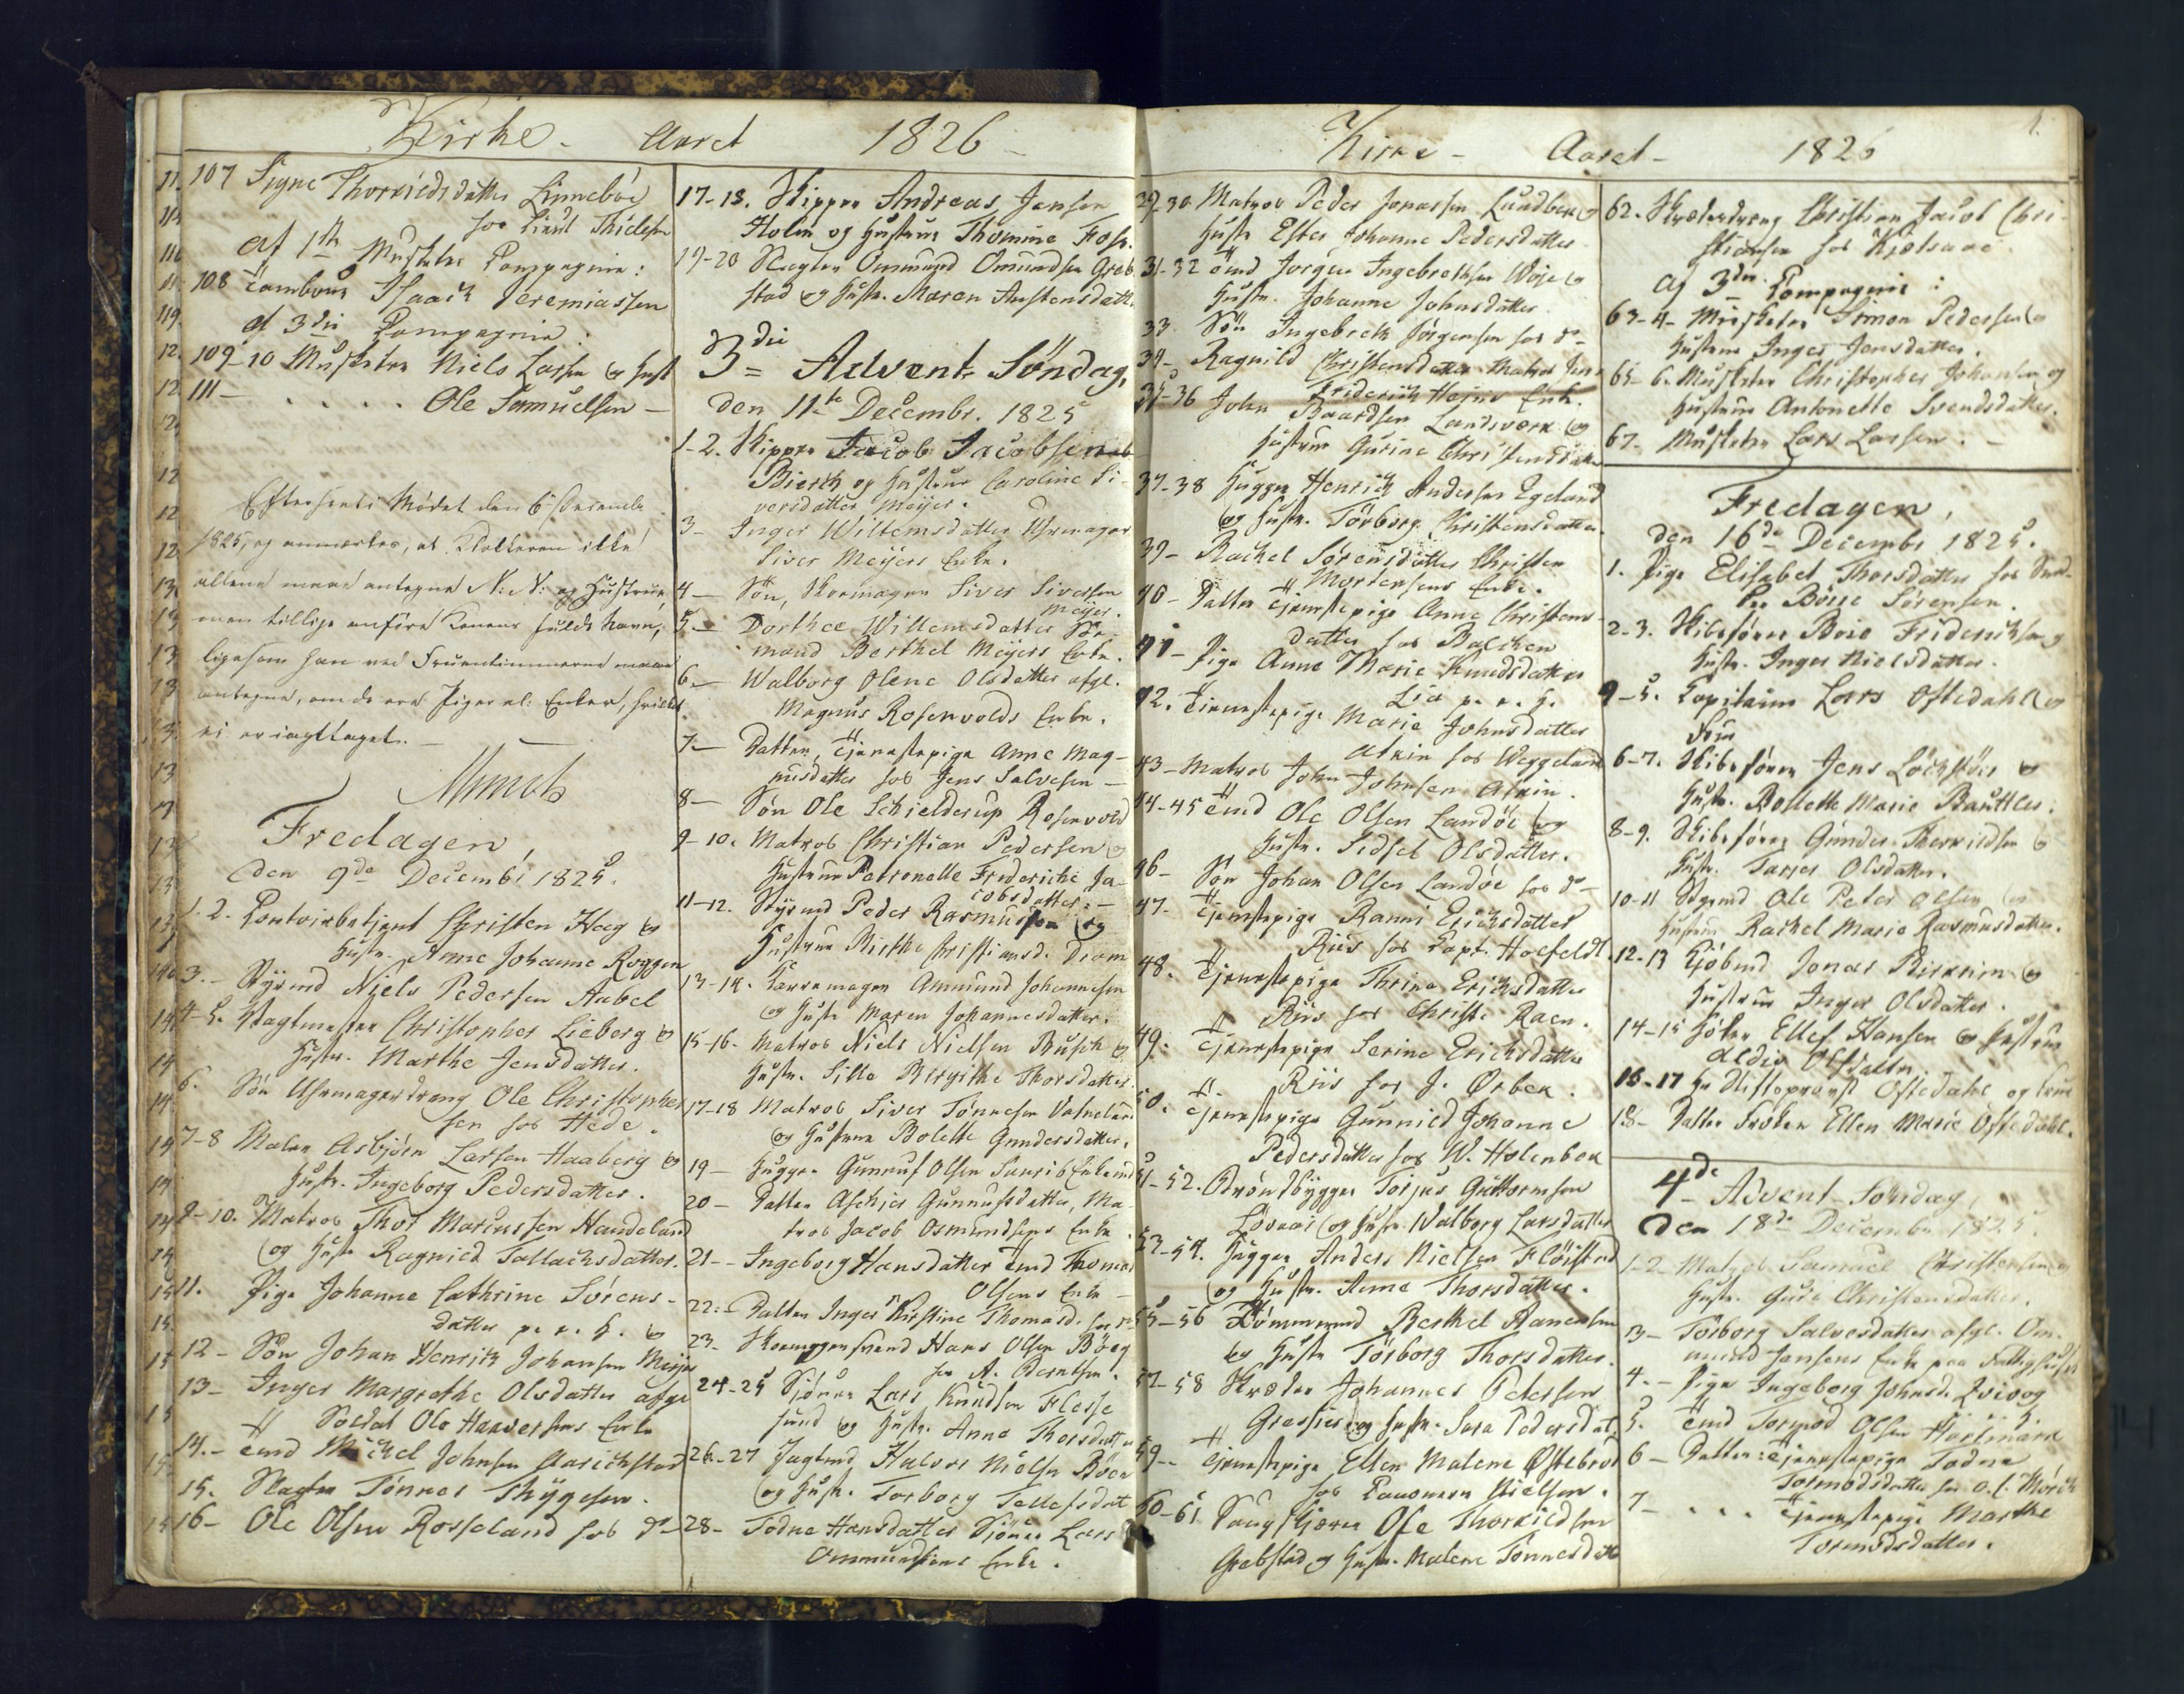 Kirke - Aaret 1826 -
107 Signe Thorkildsdatter Linneböe
hos Lieut Thielesen
af 1ste Musketer Compagnie:
108 Tambour Isaach Jeremiassen
af 3die Compagnie:
109-10 Musketer Niels Larsen og Hust
111 - . . . . . Ole Samuelsen -
Efterseet i Mödet den 6 Decembr
1825, og anmærkes, at Klokkeren ikke
allene maae antegne N: N: og Hustrue,
men tillige anföre Konens fulde Navn,
ligesom han ved Fruentimmerne maae
antegne, om de ere Piger el: Enker, hvilket
ei er iagttaget. -
Munch
Fredagen,
den 9de Decembr 1825.
1. 2. Contoirbetjent Christen Høeg og
Hustr. Anne Johanne Roggen
3. - Styrmd Niels Pedersen Aabel
4-5. Vagtmester Christopher Lieberg og
Hustr. Marthe Jensdatter.
6. Sön Uhrmagerdreng Ole Christopher
sen hos Hede.
7-8 Maler Asbjörn Larsen Haaberg og
Hustr. Ingeborg Pedersdatter.
9-10. Matros Thor Marcussen Haudeland
og Hustr Ragnild Tallachsdatter.
11. Pige Johanne Cathrine Sörens-
datter p. e. H. og
12 - Sön Johan Henrich Johansen Meyer
13 - Inger Margrethe Olsdatter afgl
Soldat Ole Haaversens Enke
14. - Tmd Michel Johnsen Aarichstad
15. Slagter Tönnes Thÿgesen.
16 - Ole Olsen Rosseland hos do -
17-18. Skipper Andreas Jensen
Holm og Hustrue Thomine Foss.
19-20 Slagter Ommund Omundsen Greb
stad og Hustr. Maren Austensdatt.
3die Advent Söndag,
den 11te Decembr. 1825
1-2. Skipper Jacob Jacobsen
Bierch og Hustrue Caroline Si-
versdatter Meÿer.
3 - Inger Willemsdatter Uhrmager
Siver Meÿers Enke.
4 - Sön, Skoemager Siver Siversen
Meÿer.
5 - Dorthee Willemsdatter Sö
mand Berthel Meÿers Enke.
6. - Walborg Olene Olsdatter afgl.
Magnus Rosenvolds Enke.
7. - Datter, Tjenestepige Anne Mag-
nusdatter hos Jens Salvesen -
8 - Sön Ole Schielderup Rosenvold
9-10. Matros Christian Pedersen og
Hustrue Petronelle Fridericke Ja-
cobsdatter. -
11-12. Styrmd Peder Rasmussen og
Hustrue Birthe Christiansd. Diom
13-14. Farvemager Ammund Johannesen
og Hustr Maren Johannesdatter.
15-16. Matros Niels Nielsen Busch og
Hustr. Sille Birgithe Thorsdatter.
17-18 Matros Siver Tönnesen Vatneland
og Hustrue Bolette Gundersdatter.
19 - Hugger Gunnuf Olsen Enkemd
20 - Datter Aschier Gunnufsdatter, Ma-
tros Jacob Osmundsens Enke.
21 - Ingeborg Hansdatter Tmd Thomas
Olsens Enke -
22. - Datter Inger Kirstine Thomasd. hos do
23 - Skoemagersvend Hans Olsen Böeg
hos A. Berntsen.
24-25 Sjömd Lars Knudsen Flesse
sund og Hustr. Anne Thorsdatter
26-27 Jagtmd Halvor Nielsen Böen
og Hustr. Torborg Tellefsdat
28 - Todne Hansdatter Sjömd Lars
Ommundsens Enke.
Kirke - Aaret - 1826
29-30. Matros Peder Jonassen Lundberg og
Hustr Ester Johanne Pedersdatter
31-32 Tmd Jörgen Ingebrethsen Woje og
Hustr. Johanne Johnsdatter
33 Sön Ingebreth Jörgensen hos do -
34 - Ragnild Christensdatter Matros Jens
Friderich Heins Enke.
35-36 John Baardsen Landsverk og
Hustrue Gurine Christensdatter
37-38 Hugger Henrich Andersen Egeland
og Hustr. Törborg Christensdatter.
39 - Rachel Sörensdatter Christen
Mortensens Enke.
40 - Datter Tjenestepige Anne Christens-
datter hos Balchen
41 - Pige Anne Marie Knudsdatter
Lia p. e. H.
42. Tjenestepige Marie Johnsdatter
Atrin hos Weggeland
43 - Matros John Johnsen Atrin.
44-45 Tmd Ole Olsen Landöe og
Hustr. Sidsel Olsdatter.
46 - Sön Johan Olsen Landöe hos do -
47. Tjenestepige Ranni Erichsdatter
Riis hos Capt. Hoefeldt
48. Tjenestepige Thrine Erichsdatter
Riis hos Christi Raen.
49. Tjenestepige Serine Erichsdatter
Riis hos J. Örbek.
50. Tjenestepige Gunnild Johanne
Pedersdatter hos W. Holenbek
51-52. Bröndbÿgger Torjus Guttormsen
Lövaas og Hustr. Walborg Larsdatter
53-54. Hugger Anders Nielsen Flöistad
og Hustr. Anne Thorsdatter.
55-56 Tömmermd Berthel Danielsen
og Hustr Törborg Thorsdatter.
57-58 Skræder Johannes Petersen
Grasfier og Hustr. Sara Pedersdat.
59 - Tjenestepige Ellen Malene Östebrod
hos Nielsen.
60-61 Saugskjærer Ole Thorkildsen
Grebstad og Hustr. Malene Tönnesdatt
62. Skræderdreng Christian Jacob Chri-
stiansen hos Kjölaas
af 3die Compagnie:
63-4 - Musketer Simon Pedersen og
Hustrue Inger Jensdatter.
65-6. Musketer Christopher Johansen og
Hustrue Antonette Svendsdatter.
67 - Musketer Lars Larsen. -
Fredagen,
den 16de Decembr 1825.
1. Pige Elisabet Thorsdatter hos
Boÿe Sörensen.
2-3. Skibsförer Boie Friderichsen og
Hustr. Inger Nielsdatter.
4-5. Capitain Lars Oftedahl og
Frue
6-7. Skibsförer Jens Löchstöer og
Hustr. Bollette Marie Bauttler.
8-9. Skibsförer Gunder Therkildsen og
Hustr. Tarjer Olsdatter.
10-11 Styrmd Ole Peter Olsen og
Hustrue Rachel Marie Rasmusdatter.
12-13 Kjöbmd Jonas Birkrim og
Hustrue Inger Olsdatter.
14-15 Höker Ellef Hansen og Hustrue
Aldis Olsdatter
16-17 Hr Stiftsprovst Oftedahl og Frue
18 - Datter Fröken Ellen Marie Oftedahl.
4de Advent-Söndag,
den 18de Decembr 1825.
1-2 - Matros Samuel Christensen og
Hustr. Guro Christensdatter.
3 - Törborg Salvesdatter afgl. Om-
mund Jensens Enke paa Fattighuset
4. - Pige Ingeborg Johnsd. Qvivog
5. Tmd Tormod Olsen Hartmark
6 - Datter: Tjenestepige Todne
Tormodsdatter hos O. C. Mörch
7 - . . . Tjenestepige Marthe
Tormodsdatter.